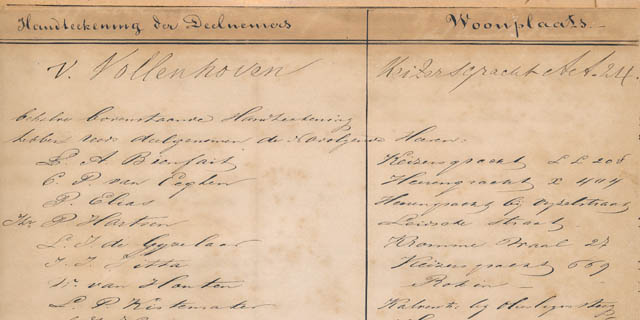 Handteekening der Deelnemers Woonplaats.
v. Vollenhoven Keizersgracht AA. 24.
behalve bovenstaande Handteekening
hebben voor deelgenomen de Navolgende Heeren:
L. A. Bienfait Keizersgracht LL 208
C. P. van Eeghen Heerengracht X 404
P. Elias Heerengracht bij Vyzelstraat
P. Hartsen Leidsche Straat
L. J. de Gyzelaar Kromme Waal 23
J. J. Sitta Keizersgracht 669
W. van Houten Rokin —
L. P. Kistemaker Kalverstr. bij